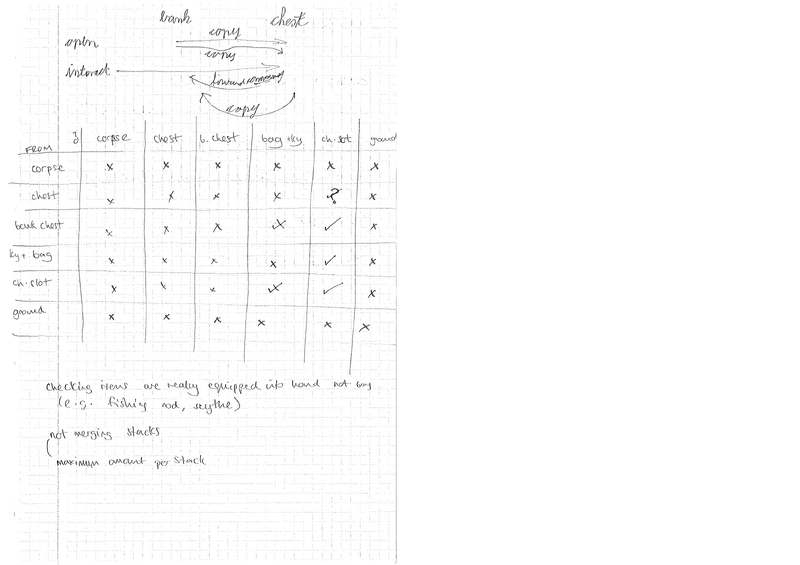 bank chest
open copy
copy
interact
copy
FROM corpse chest b. chest bag + ky ch. slot ground
corpse x x x x x x
chest x x x x ? x
bank chest x x x x ✓ x
ky + bag x x x x ✓ x
ch. slot x x x ✓ x
ground x x x x x x
checking items are really equipped into hand not bag
(e.g. fishing rod, scythe)
not merging stacks
maximum amount per stack